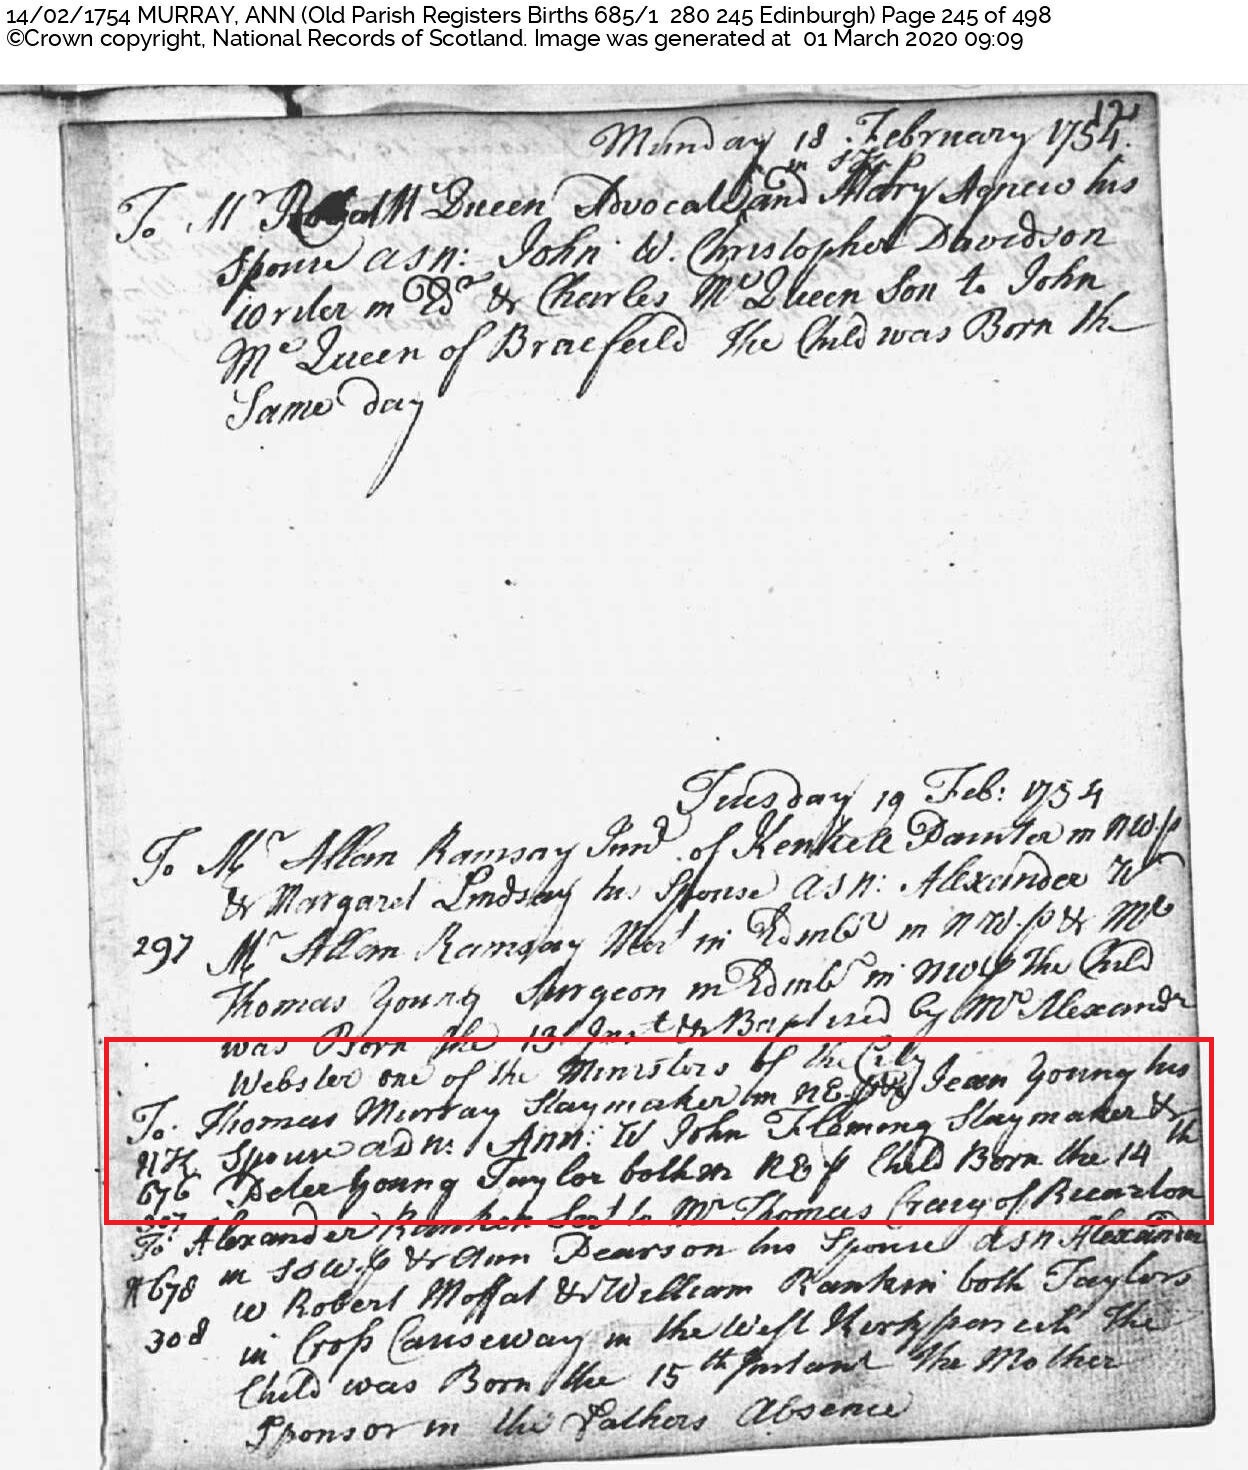 14/02/1754 MURRAY, ANN (Old Parish Registers Births 685/1 280 245 Edinburgh) Page 245 of 498
©Crown copyright, National Records of Scotland. Image was generated at 01 March 2020 09:09
12
Munday 18 February 1754.
To Mr McQueen Advocate and Mary Agnew his
Spouse a S n: John W. Christopher Davidson
writer in Edr & Charles McQueen Son to John
McQueen of Braefeild the Child was Born the
Same day
Tuesday 19 Feb: 1754
To Mr Allan Ramsay Junr of Kenkell Painter in NW. p
& Margaret Lindsay his Spouse a S n: Alexander W
297 Mr Allan Ramsay Mert in Edinbr in NW. p & Mr
Thomas Young Surgeon in Edinbr in NW p The Child
was Born the 13 Inst & Baptised by Mr Alexandr
Webster one of the Ministers of the City
To Thomas Murray Staymaker in NE. p & Jean Young his
NK Spouse a D n: Ann: W John Fleming Staymaker &
676 Peter Young Taylor both in NE p Child Born the 14th
307 Alexander Ranken Servt to Mr Thomas Craig of Riccarton
To in SSW p & Ann Pearson his Spouse a S n Alexander
N 678 W Robert Moffat & William Rankin both Taylors
308 in Cross Causeway in the West Kirk parish The
Child was Born the 15th Instant the Mother
Sponsor in the Fathers Absence